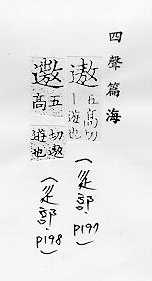 四聲篇海
遨 五高切｜遊也 (辵部 P197)
遨 五高切遨遊也 (辵部 P198)